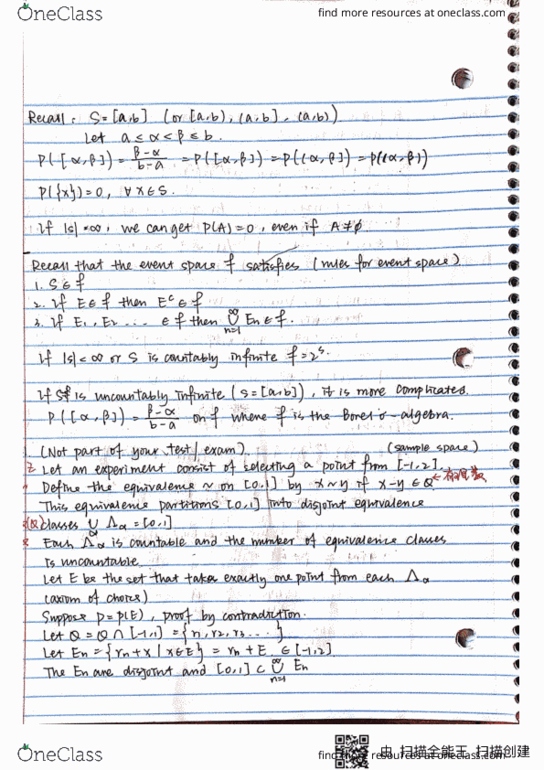 OneClass
find more resources at oneclass.com
Recall: S=[a,b] (or [a,b), (a,b], (a,b))
Let a≤α<β≤b.
P([α,β]) = β-α/b-a = P([α,β)) = P((α,β]) = P((α,β))
P({x})=0, ∀x∈S.
If |S|=∞, we can get P(A)=0, even if A≠∅.
Recall that the event space f satisfies (rules for event space)
1. S∈f
2. If E∈f then Eᶜ∈f
3. If E₁, E₂ ... ∈f then ∞∪n=1 En∈f.
If |S|<∞ or S is countably infinite f=2ˢ.
If S is uncountably infinite (S=[a,b]), it is more complicated.
P([α,β]) = β-α/b-a on f where f is the Borel σ-algebra.
(Not part of your test/exam). (sample space)
Let an experiment consist of selecting a point from [-1,2].
Define the equivalence ~ on [0,1] by x~y if x-y∈Q ←有理数
This equivalence partitions [0,1] into disjoint equivalence
(Q) classes ∪α Λα=[0,1]
Each Λα is countable and the number of equivalence classes
is uncountable.
Let E be the set that takes exactly one point from each Λα
(axiom of choice)
Suppose p=P(E), proof by contradiction.
Let Q=Q∩[-1,1]={r₁,r₂,r₃....}
Let En={rn+x|x∈E}=rn+E ∈[-1,2].
The En are disjoint and [0,1]⊂ ∞∪n=1 En
OneClass
find more resources at oneclass.com
由 扫描全能王 扫描创建